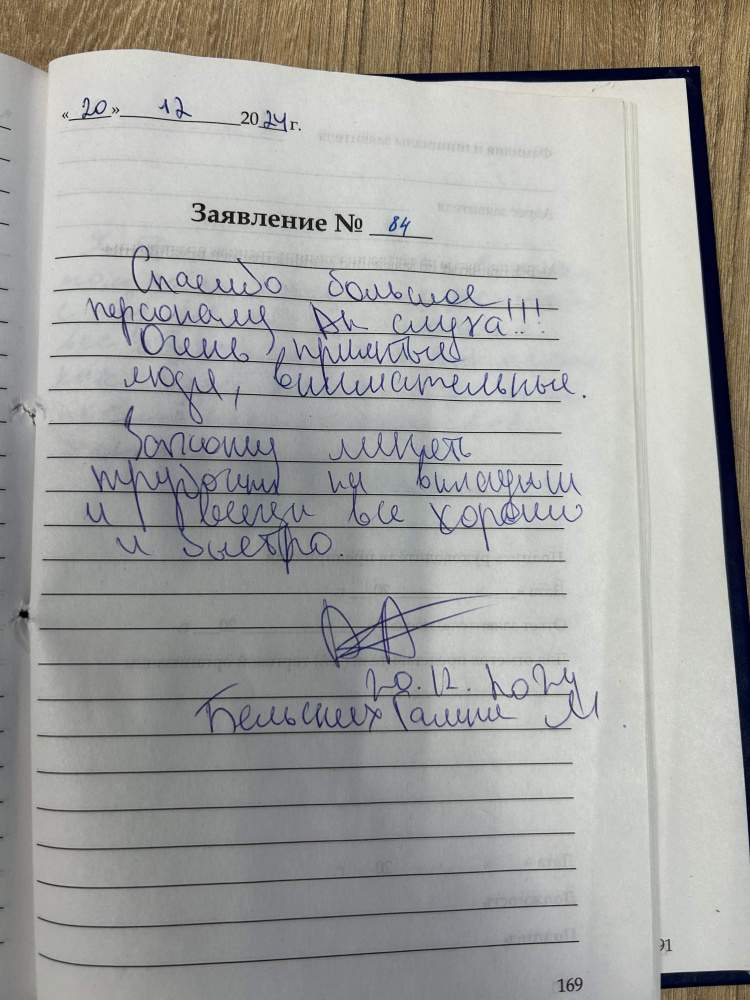 «20» 12 2024 г.
Заявление № 84
Спасибо большое
персоналу Ак слуха!!!
Очень приятные
люди, внимательные.
на вкладыш
и всегда все хорошо
и быстро.
20.12.2024
Бельских Галина М
169
91